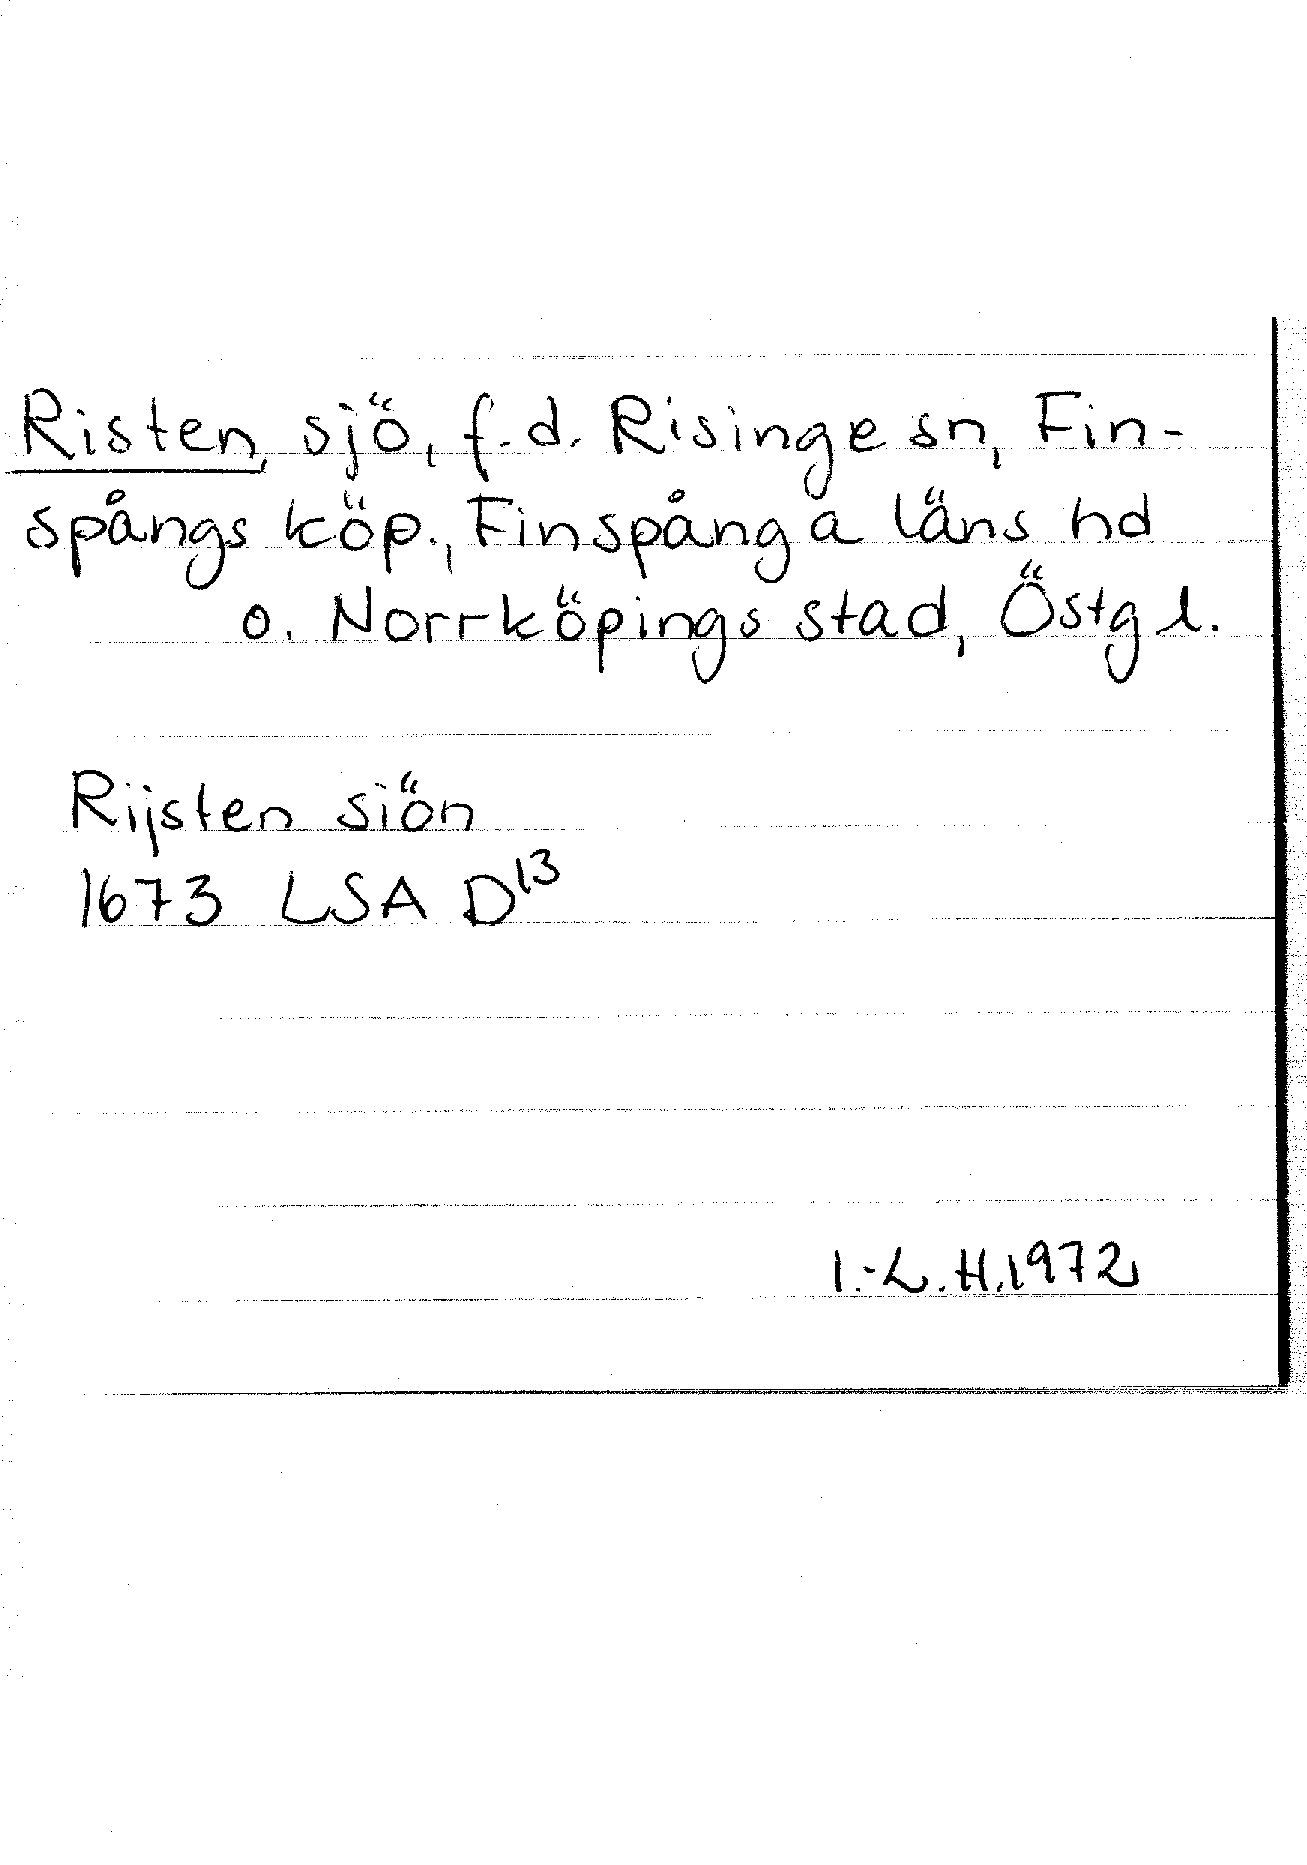 Risten, sjö, f.d. Risinge sn, Fin-
spångs köp., Finspånga läns hd
o. Norrköpings stad, Östgl.
Rijsten siön
1673 LSA D13
I.-L.H.1972